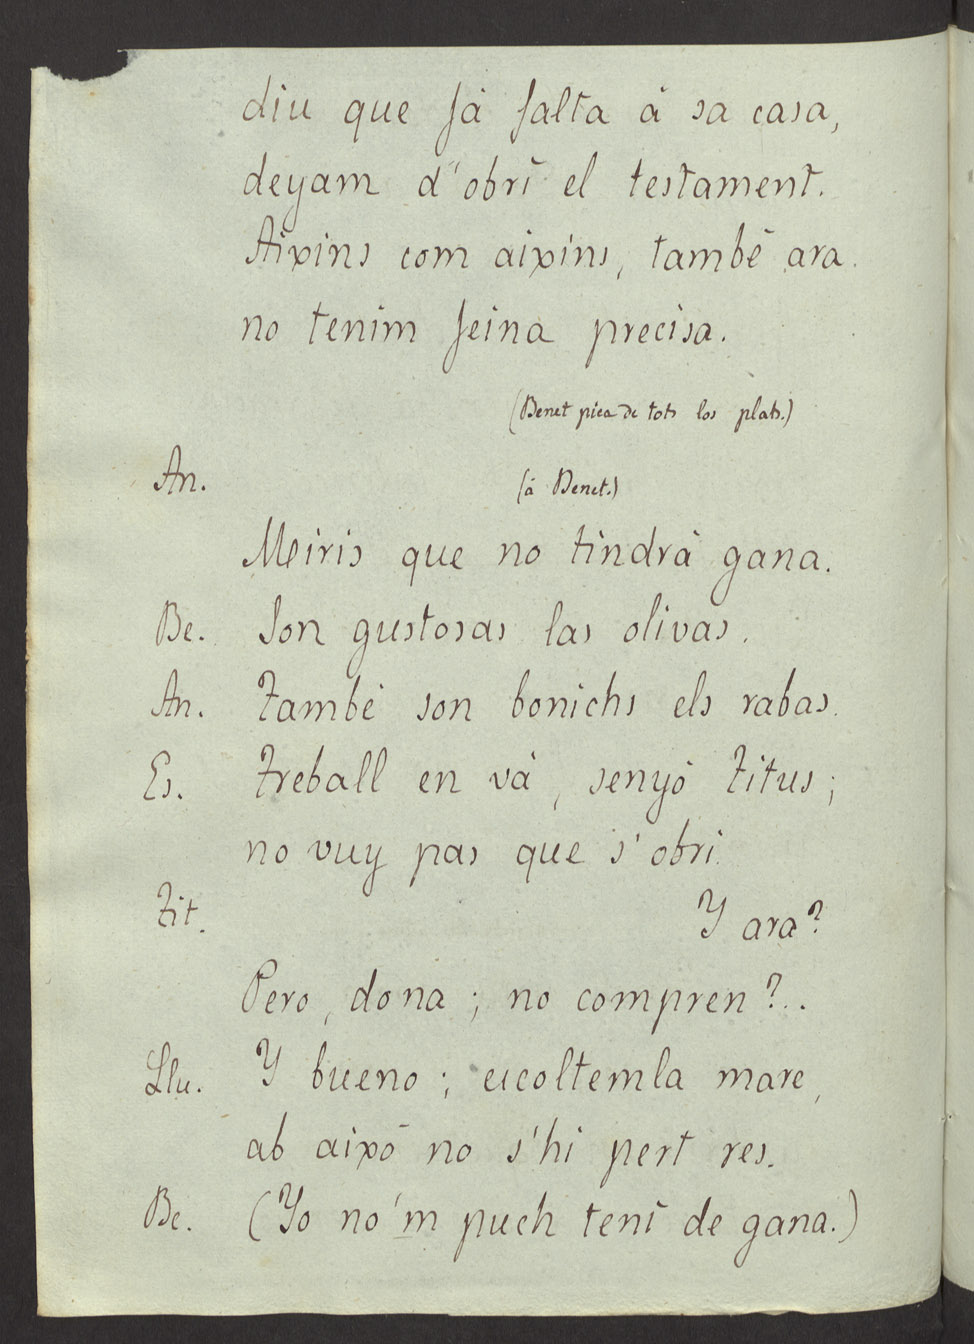 diu que fá falta á sa casa,
deyam d'obrí el testament.
Aixins com aixins, també ara
no tenim feina precisa.
(Benet pica de tots los plats.)
An. (á Benet.)
Miris que no tindrá gana.
Be. Son gustosas las olivas.
An. També son bonichs els rabas.
Es. Treball en vá, senyó Titus;
no vuy pas que s'obri.
Tit. Y ara?
Pero, dona; no compren?..
Llu. Y bueno; escoltemla mare,
ab aixó no s'hi pert res.
Be. (Yo no'm puch tení de gana.)